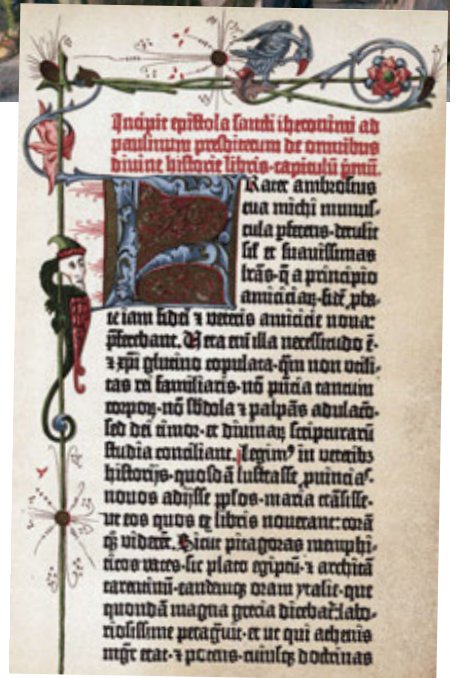 Incipit epistola sancti iheronimi ad
paulinum presbiterum de omnibus
divine historie libris·capitulū p̄mū.
Frater ambrosius
tua michi munus-
cula ꝑferens·detulit
sił et suavissimas
lr̄as·q̄ a principio
amiciciaꝝ·fidē ꝓba-
te iam fidei ⁊ veteris amicicie nova:
p̄ferebant. Vera em̄ illa necessitudo ē·
⁊ xp̄i glutino copulata·q̄m non utili-
tas rei familiaris·nō pn̄cia tantum
corpoꝝ·nō sƀdola ⁊ palpās adulacō·
sed dei timor·et divinaꝝ scripturarū
studia conciliant. Legimꝰ in veteribꝫ
historijs·quosdā lustrasse ꝓvincias·
novos adijsse ꝓplos·maria trāsisse·
ut eos quos ex libris noverant: corā
qꝫ viderēt. Sicut pitagoras memphi-
ticos vates·sic plato egiptū·⁊ architā
tarentinū·eandemqꝫ oram ytalie·que
quondā magna grecia dicebat᷑: labo-
riosissime peragͥvit·et ut qui athenis
mgr̄ erat·⁊ potens·cuiusqꝫ doctrinas